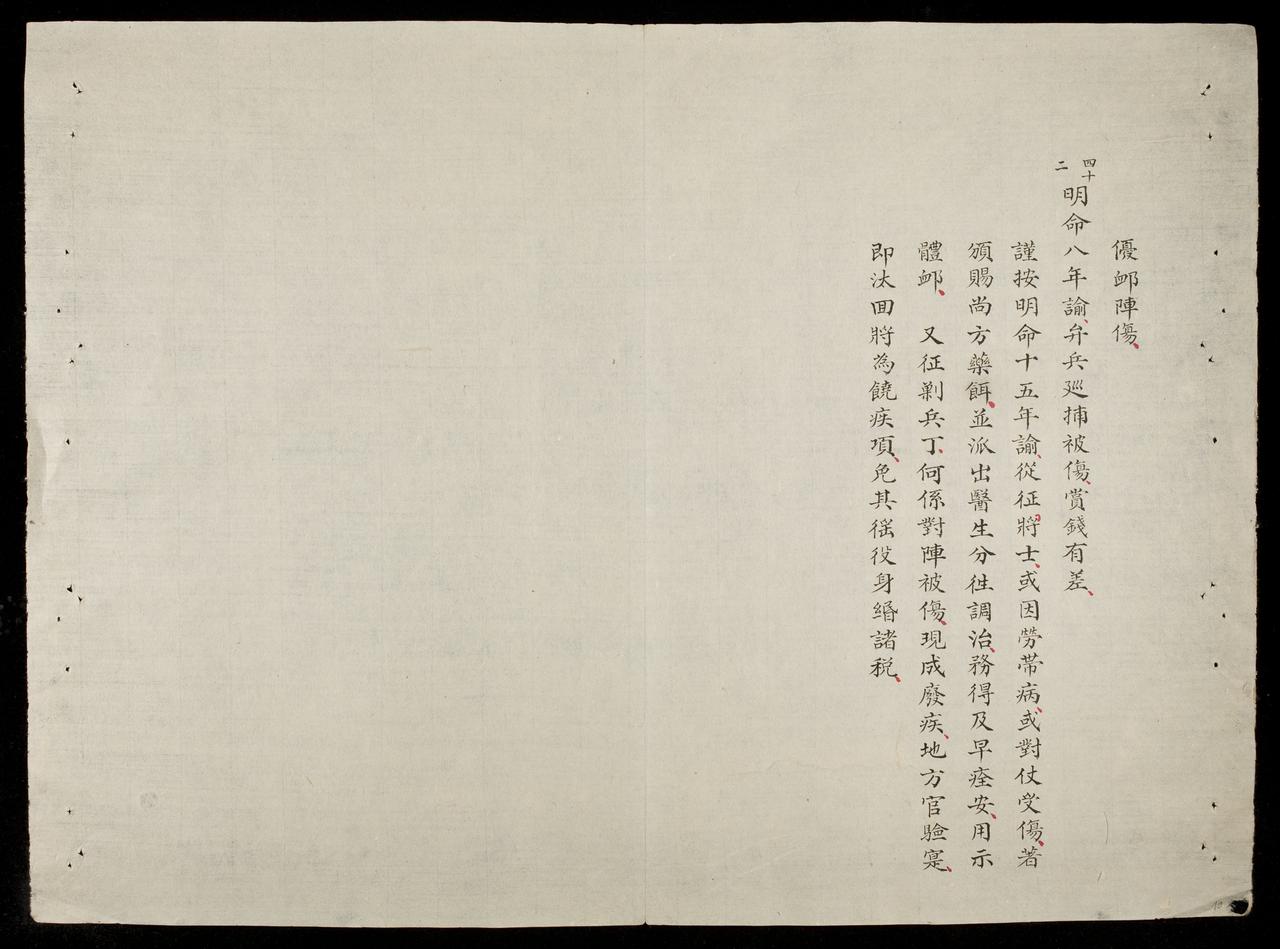 優䘏陣傷、
四十二
明命八年諭、弁兵廵捕被傷、賞錢有差、
謹按明命十五年諭、從征將士、或因勞帶病、或對仗受傷、著
頒賜尚方藥餌、並派出醫生分徃調治、務得及早痊安、用示
體䘏、　又征剿兵丁、何係對陣被傷、現成廢疾、地方官驗寔、
即汰囬將為饒疾項、免其徭役身緡諸税、